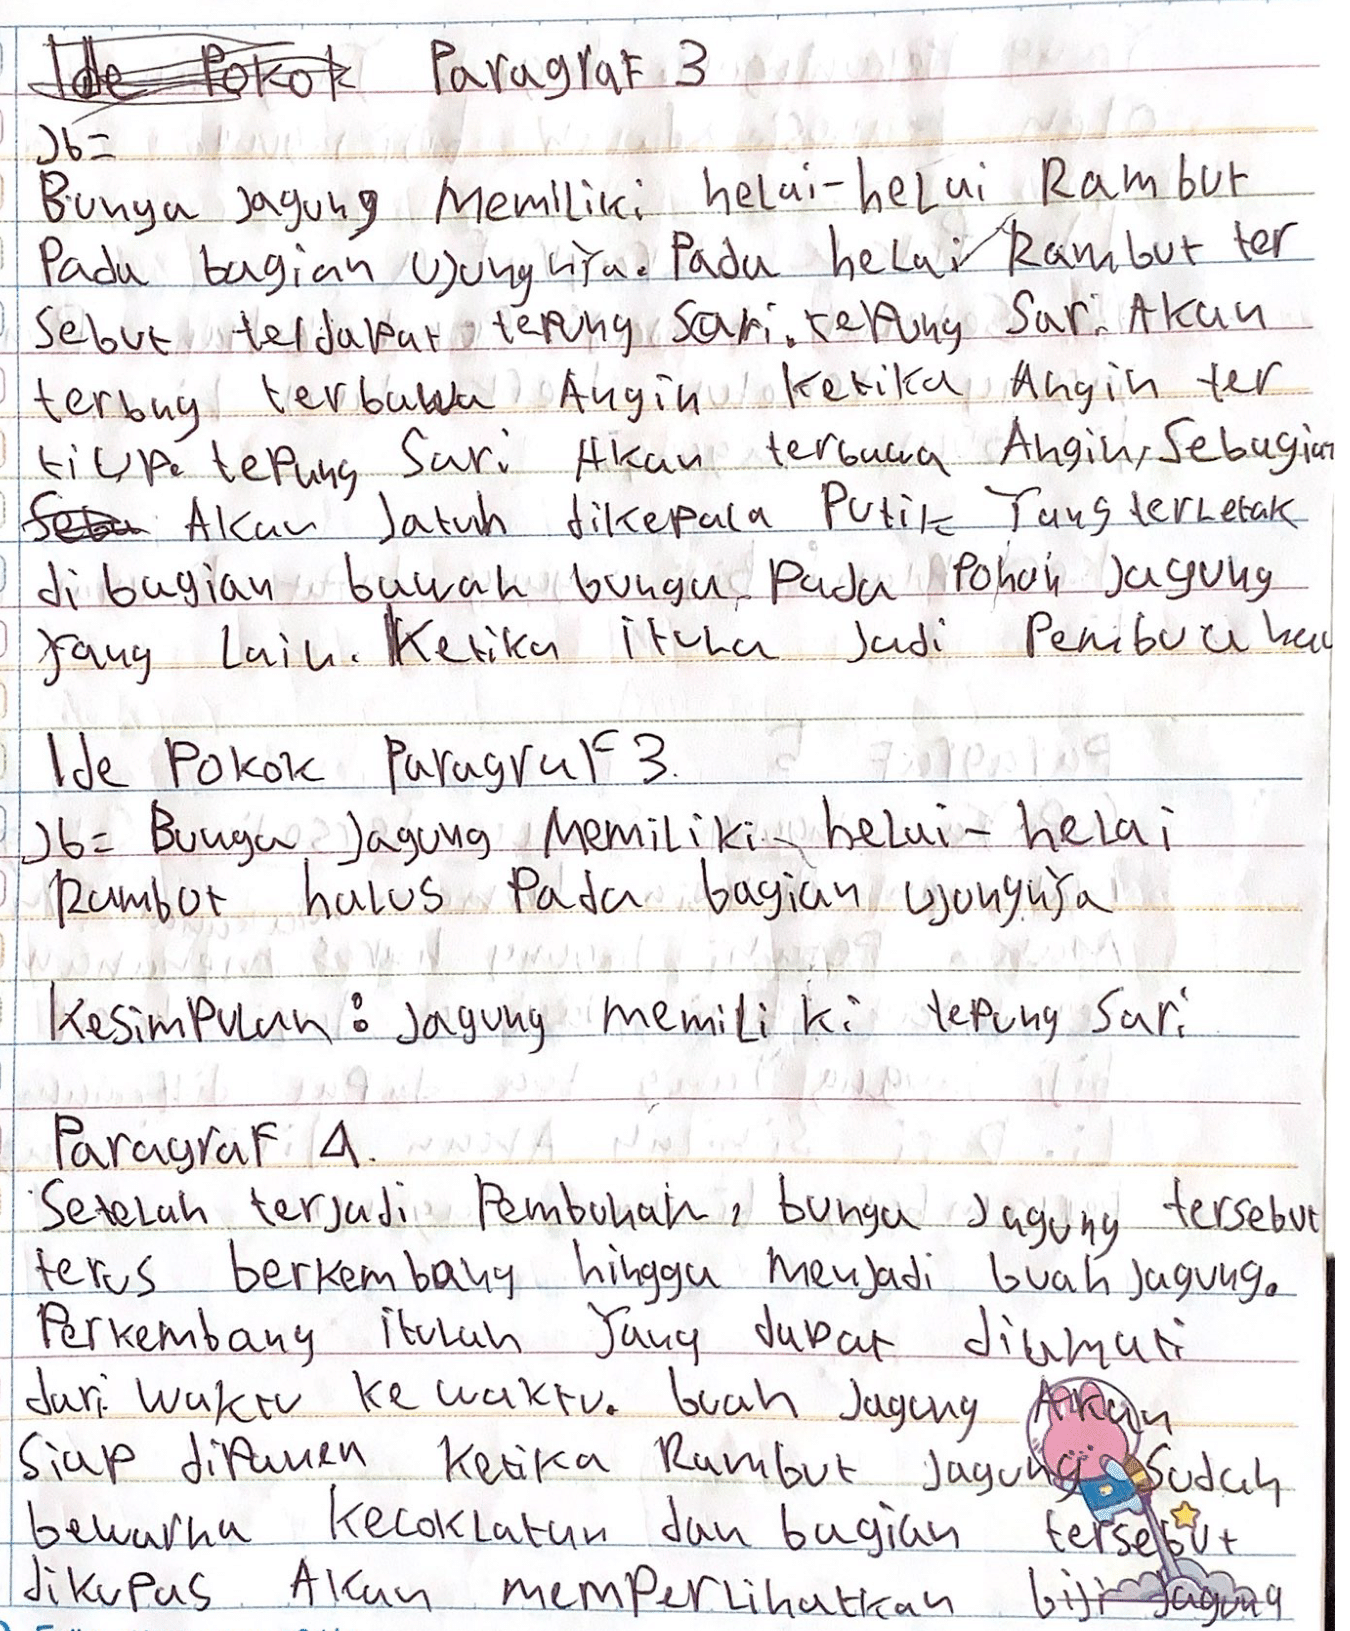 Ide Pokok Paragraf 3
Jb=
Bunga Jagung Memiliki helai-helai Rambut
Pada bagian Ujungnya. Pada helai Rambut ter
Sebut terdapat tepung Sari. tepung Sari Akan
terbng terbawa Angin Ketika Angin ter
tiUp. tepung Sari Akan terbawa Angin, Sebagian
Seba Akan Jatuh dikepala Putik Yang terLetak
di bagian bawah bunga Pada Pohon Jagung
Yang Lain. Ketika ituha Jadi Pembuahan
Ide Pokok Paragraf 3.
Jb= Bunga Jagung Memiliki helai-helai
Rambut halus Pada bagian Ujungnya
Kesimpulan : Jagung memiliki tepung Sari
Paragraf 4.
Setelah terjadi Pembuhah, bunga Jagung tersebut
terus berkembang hingga Menjadi buah Jagung.
Perkembang itulah Yang dapat diamati
dari Waktu ke waktu. buah Jagung Akan
Siap diPanen Ketika Rambut Jagung Sudah
bewarna Kecoklatan dan bagian tersebut
dikupas Akan memperLihatkan biji Jagung